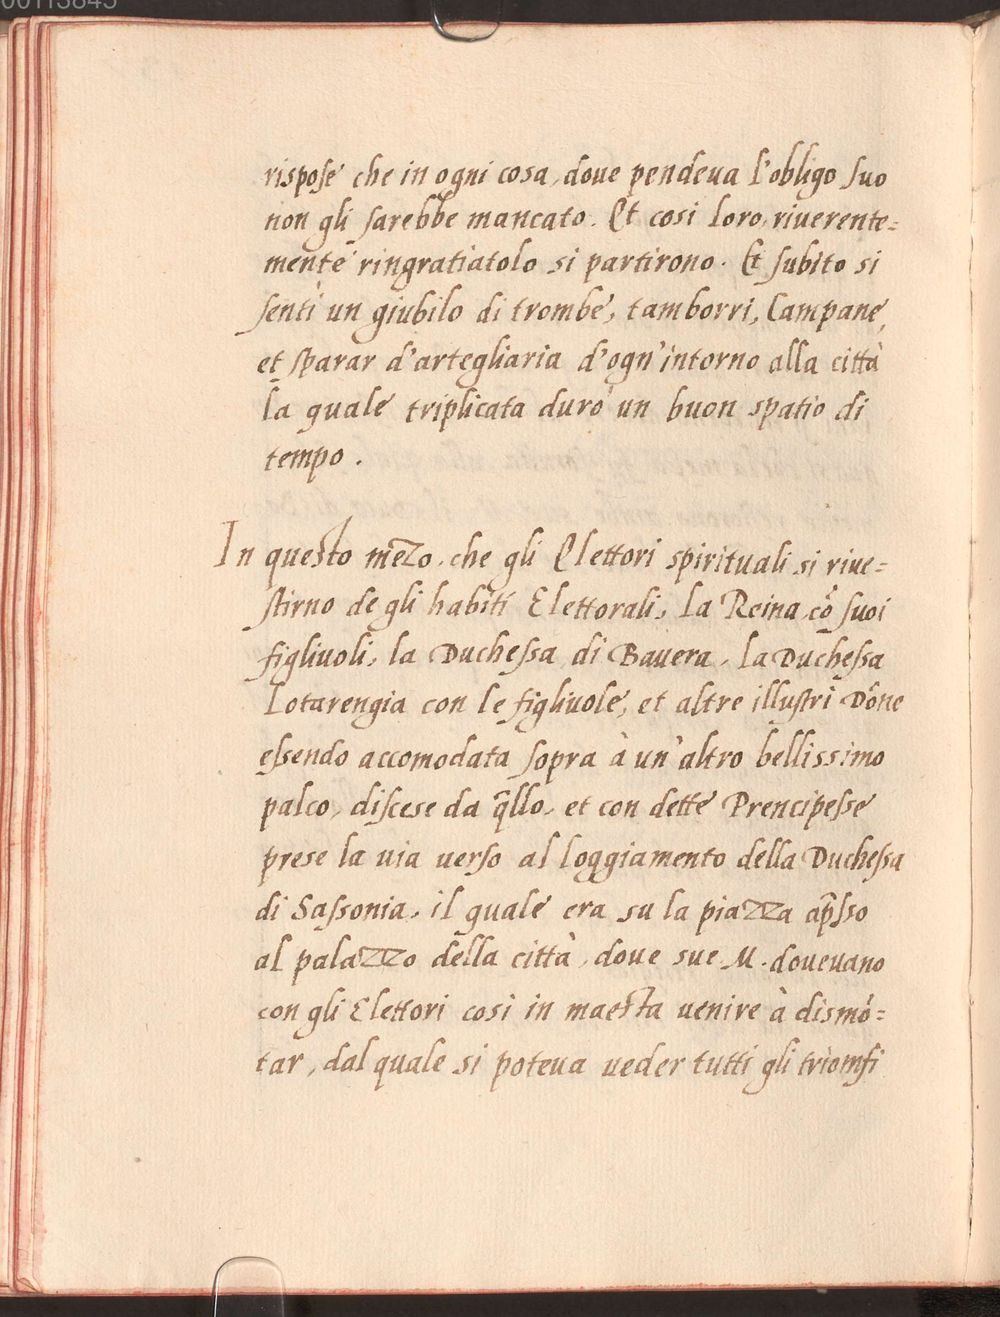 00113845
rispose che in ogni cosa, doue pendeua l'obligo suo
non gli sarebbe mancato. Et cosi loro, riuerente=
mente ringratiatolo si partirono. Et subito si
senti un giubilo di trombe, tamborri, Campane,
et sparar d'artegliaria d'ogn'intorno alla città
la quale triplicata durò un buon spatio di
tempo.
In questo mezo, che gli Elettori spirituali si riue=
stirno de gli habiti Elettorali, la Reina, cõ suoi
figliuoli, la Duchessa di Bauera, la Duchessa
Lotarengia con le figliuole, et altre illustri Dõne
essendo accomodata sopra à un'altro bellissimo
palco, discese da q̃llo, et con dette Prencipesse
prese la uia uerso al loggiamento della Duchessa
di Sassonia, il quale era su la piazza ap̃sso
al palazzo della città, doue sue M. doueuano
con gli Elettori così in maesta uenire à dismõ=
tar, dal quale si poteua ueder tutti gli triomfi